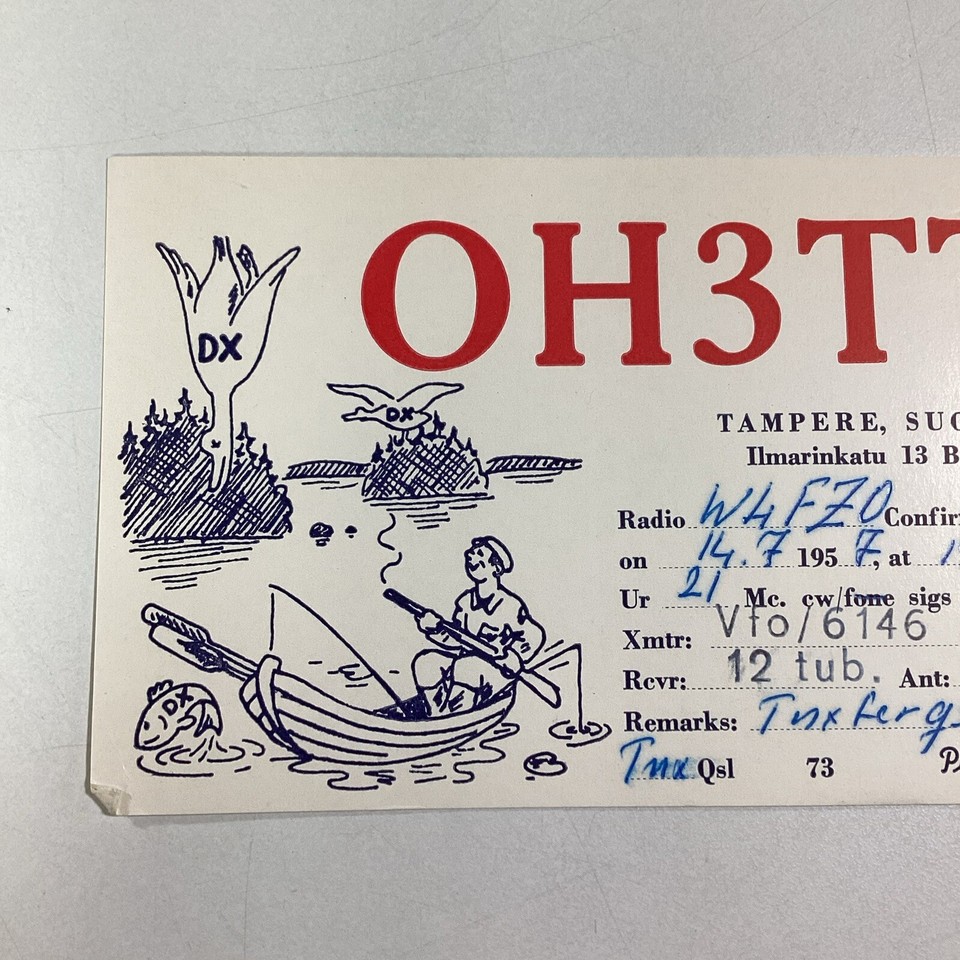 OH3TT
DX
DX
DX
TAMPERE, SUO
Ilmarinkatu 13 B
Radio W4FZO Confir
on 14.7 1957, at 1
Ur 21 Mc. cw/fone sigs
Xmtr: Vfo/6146
Rcvr: 12 tub. Ant:
Remarks: Tnx fer
Tnx Qsl 73